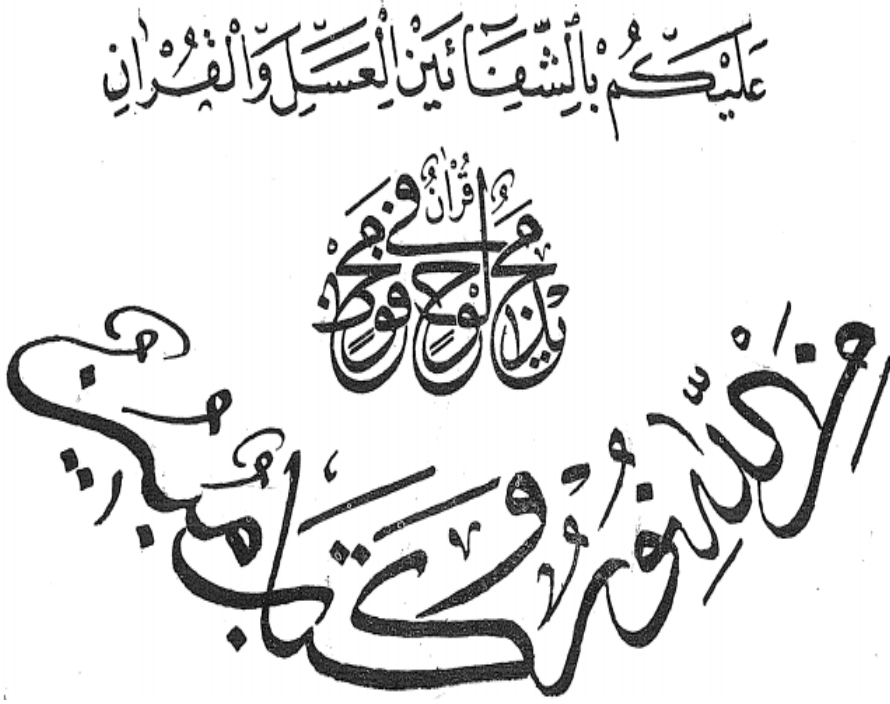 عَلَيْكُمْ بِالشِّفَآئَيْنِ الْعَسَلِ وَالْقُرْاٰنِ
قُرْاٰنٌ مَّجِيْدٌ فِيْ لَوْحٍ مَّحْفُوْظٍ
مِنَ اللّٰهِ نُوْرٌ وَّكِتَابٌ مُّبِيْنٌ